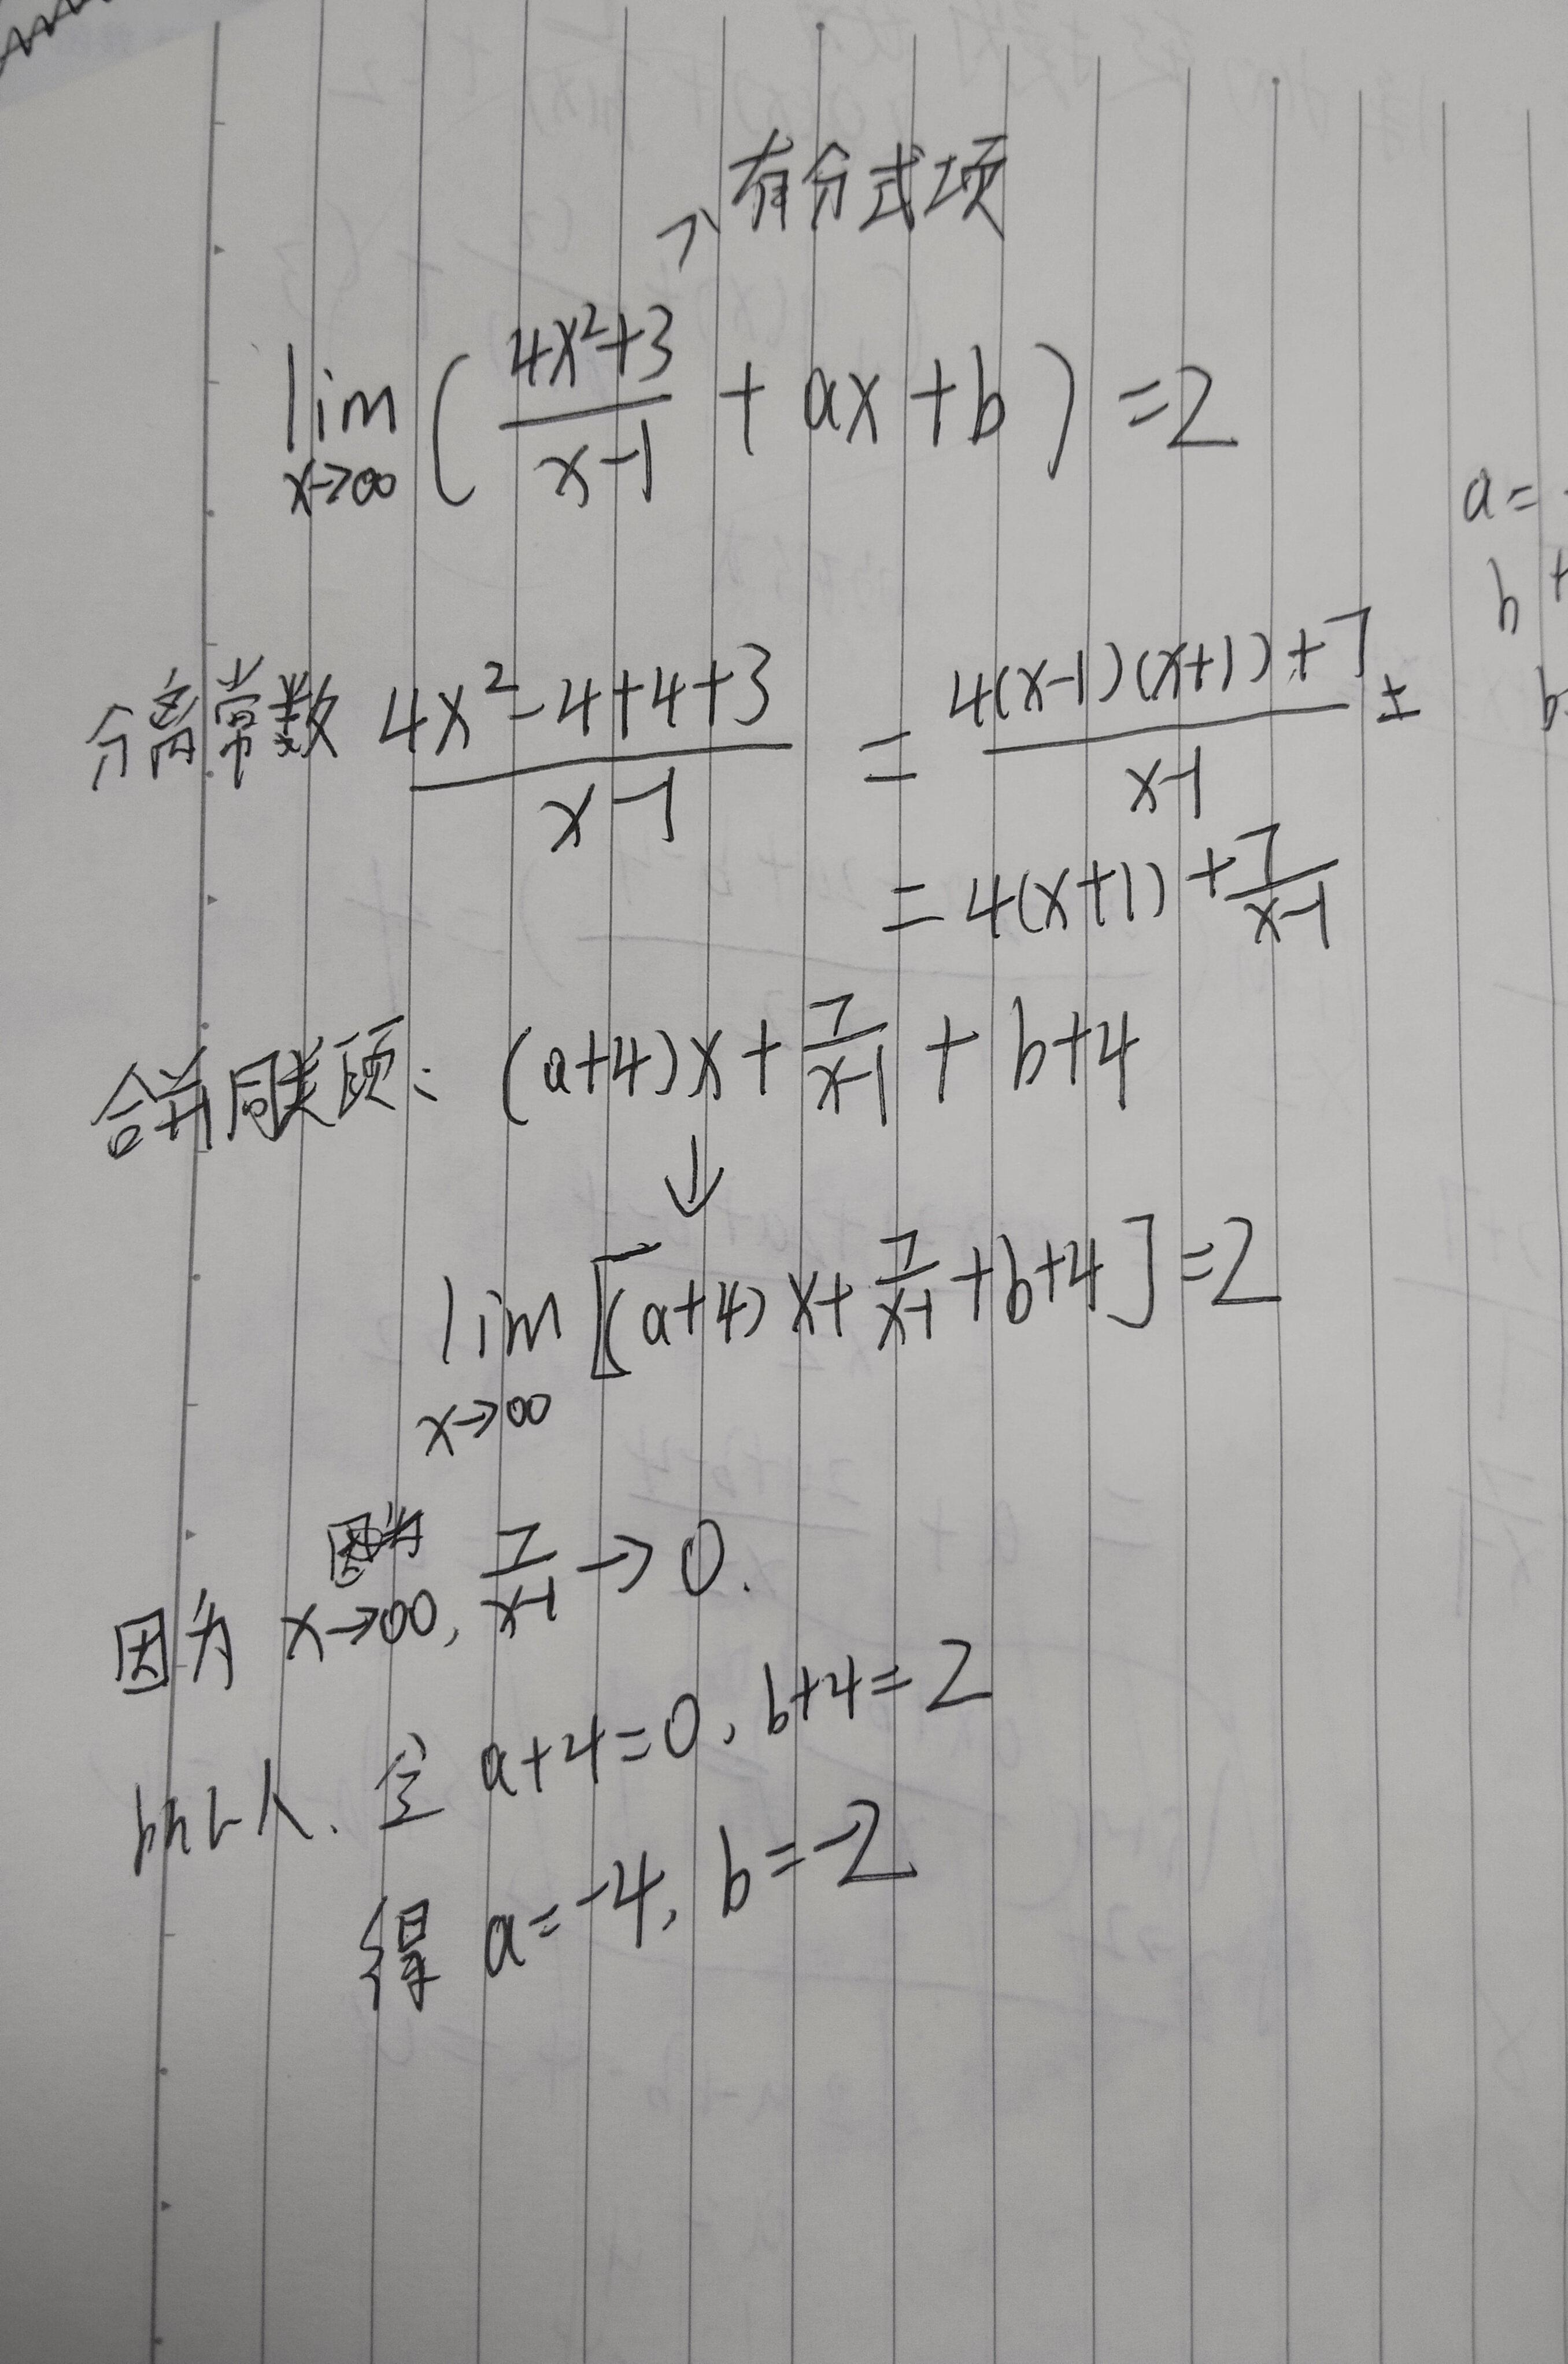 有分式项
lim x→∞ ( (4x²+3)/(x-1) + ax + b ) = 2
a=
b +
b
分离常数 (4x²-4+4+3)/(x-1) = (4(x-1)(x+1)+7)/(x-1) ±
= 4(x+1) + 7/(x-1)
合并同类项: (a+4)x + 7/(x-1) + b+4
↓
lim x→∞ [(a+4)x + 7/(x-1) + b+4] = 2
因为 x→∞, 7/(x-1) → 0.
所以, 令 a+4=0, b+4=2
得 a=-4, b=-2